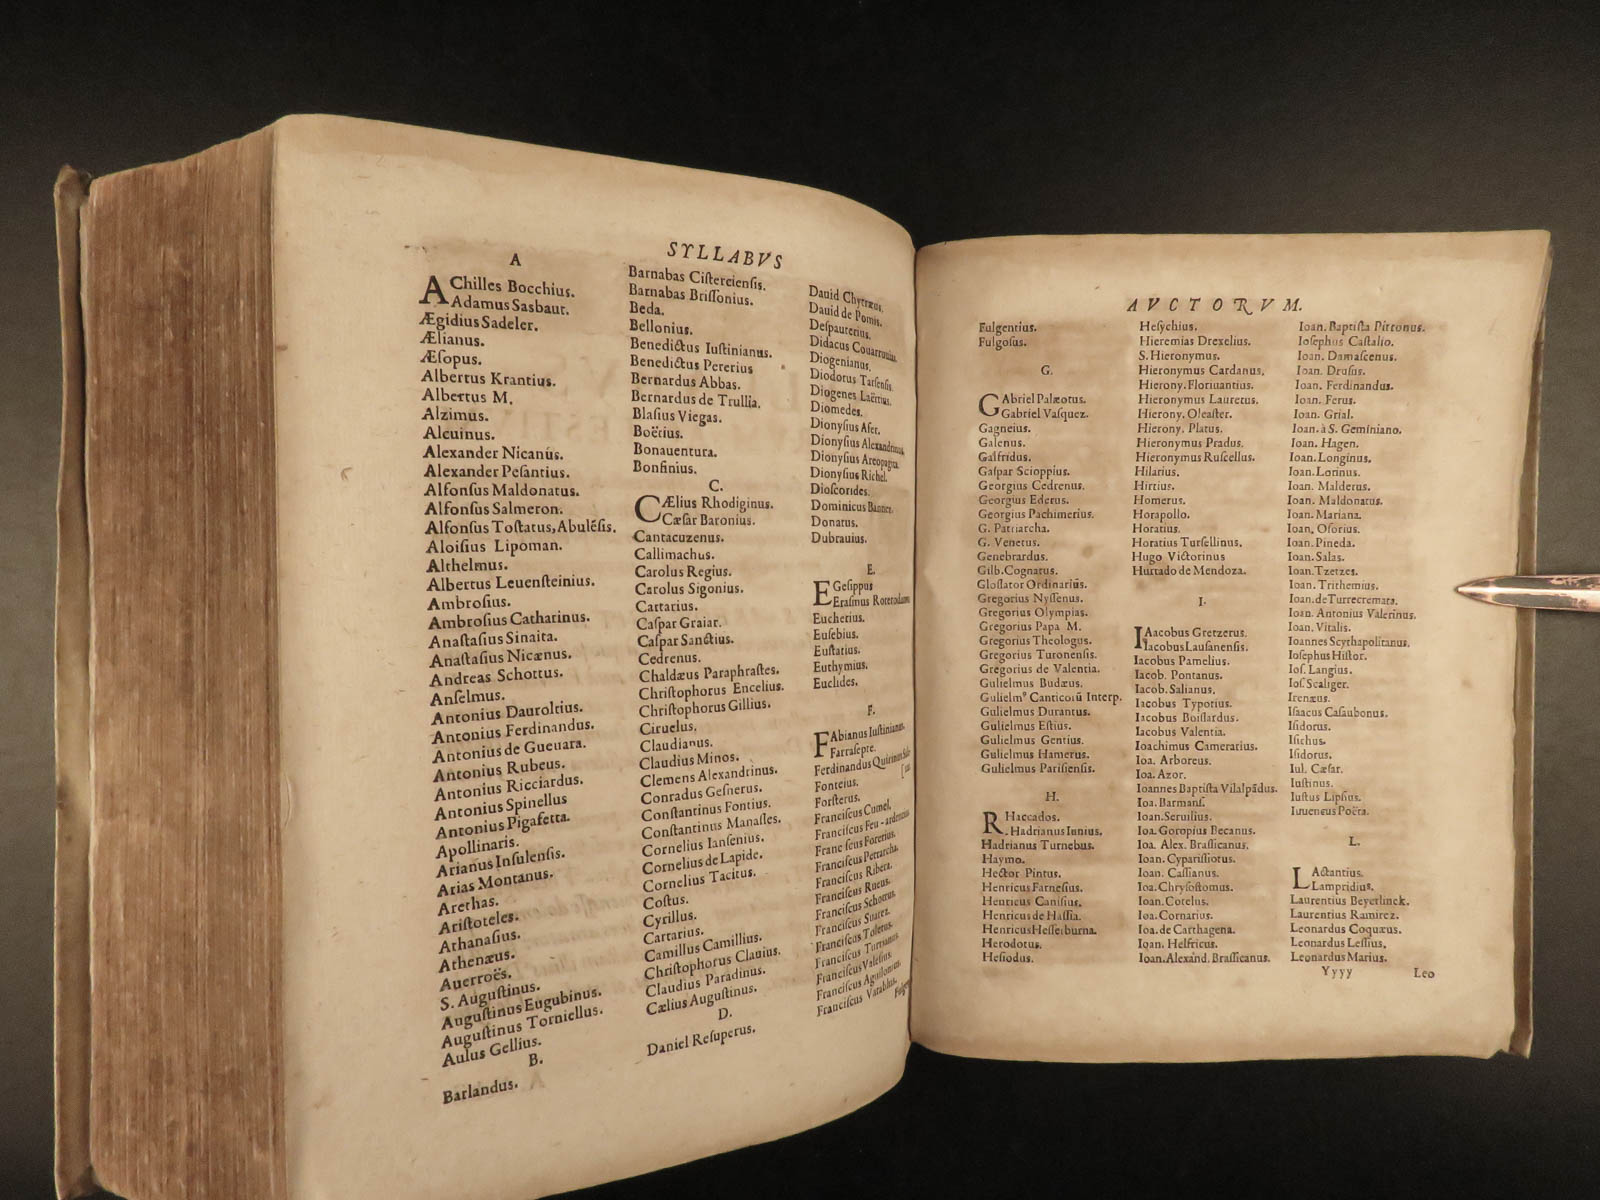 SYLLABVS
A
AChilles Bocchius.
Adamus Sasbaut.
Ægidius Sadeler.
Ælianus.
Æſopus.
Albertus Krantius.
Albertus M.
Alzimus.
Alcuinus.
Alexander Nicanus.
Alexander Peſantius.
Alfonſus Maldonatus.
Alfonſus Salmeron.
Alfonſus Toſtatus, Abulẽſis.
Aloiſius Lipoman.
Althelmus.
Albertus Leuenſteinius.
Ambroſius.
Ambroſius Catharinus.
Anaſtaſius Sinaita.
Anaſtaſius Nicænus.
Andreas Schottus.
Anſelmus.
Antonius Dauroltius.
Antonius Ferdinandus.
Antonius de Gueuara.
Antonius Rubeus.
Antonius Ricciardus.
Antonius Spinellus
Antonius Pigafetta.
Apollinaris.
Arianus Inſulenſis.
Arias Montanus.
Arethas.
Ariſtoteles.
Athanaſius.
Athenæus.
Auerroës.
S. Auguſtinus.
Auguſtinus Eugubinus.
Auguſtinus Torniellus.
Aulus Gellius.
B.
Barlandus.
Barnabas Ciſtercienſis.
Barnabas Briſſonius.
Beda.
Bellonius.
Benedictus Iuſtinianus.
Benedictus Pererius
Bernardus Abbas.
Bernardus de Trullia.
Blaſius Viegas.
Boëtius.
Bonauentura.
Bonfinius.
C.
CÆlius Rhodiginus.
Cæſar Baronius.
Cantacuzenus.
Callimachus.
Carolus Regius.
Carolus Sigonius.
Cartarius.
Caſpar Graiar.
Caſpar Sanctius.
Cedrenus.
Chaldæus Paraphraſtes.
Chriſtophorus Encelius.
Chriſtophorus Gillius.
Ciruelus.
Claudianus.
Claudius Minos.
Clemens Alexandrinus.
Conradus Geſnerus.
Conſtantinus Fontius.
Conſtantinus Manaſſes.
Cornelius Ianſenius.
Cornelius de Lapide.
Cornelius Tacitus.
Coſtus.
Cyrillus.
Cartarius.
Camillus Camillius.
Chriſtophorus Clauius.
Claudius Paradinus.
Cælius Auguſtinus.
D.
Daniel Reſuperus.
Dauid Chytræus.
Dauid de Pomis.
Deſpauterius.
Didacus Couarruuias.
Diogenianus.
Diodorus Tarſenſis.
Diogenes Laërtius.
Diomedes.
Dionyſius Afer.
Dionyſius Alexandrinus.
Dionyſius Areopagita.
Dionyſius Richel.
Dioſcorides.
Dominicus
Donatus.
Dubrauius.
E.
EGeſippus
Eraſmus Roterodamus
Eucherius.
Euſebius.
Euſtatius.
Euthymius.
Euclides.
F.
FAbianus Iuſtinianus.
Farraſepte.
Ferdinandus Quirinus
Fonteius.
Forſterus.
Franciſcus Cumel.
Franciſcus Feu-ardentius
Franciſcus Forerius.
Franciſcus Petrarcha.
Franciſcus Ribera.
Franciſcus Rueus.
Franciſcus Schottus.
Franciſcus Suarez.
Franciſcus Toletus.
Franciſcus Turrianus.
Franciſcus Valeſius.
Franciſcus Aguilonius.
Franciſcus Vatablus.
AVCTORVM.
Fulgentius.
Fulgoſus.
G.
GAbriel Palæotus.
Gabriel Vaſquez.
Gagneius.
Galenus.
Galfridus.
Gaſpar Scioppius.
Georgius Cedrenus.
Georgius Ederus.
Georgius Pachimerius.
G. Patriarcha.
G. Venetus.
Genebrardus.
Gilb. Cognatus.
Gloſſator Ordinarius.
Gregorius Nyſſenus.
Gregorius Olympias.
Gregorius Papa M.
Gregorius Theologus.
Gregorius Turonenſis.
Gregorius de Valentia.
Gulielmus Budæus.
Gulielmꝰ Canticorū Interp.
Gulielmus Durantus.
Gulielmus Eſtius.
Gulielmus Gentius.
Gulielmus Hamerus.
Gulielmus Pariſienſis.
H.
RHaccados.
Hadrianus Iunius.
Hadrianus Turnebus.
Haymo.
Hector Pintus.
Henricus Farneſius.
Henricus Caniſius.
Henricus de Haſſia.
Henricus Heſſelburna.
Herodotus.
Heſiodus.
Heſychius.
Hieremias Drexelius.
S. Hieronymus.
Hieronymus Cardanus.
Hierony. Floriuantius.
Hieronymus Lauretus.
Hierony. Oleaſter.
Hierony. Platus.
Hieronymus Pradus.
Hieronymus Ruſcellus.
Hilarius.
Hirtius.
Homerus.
Horapollo.
Horatius.
Horatius Turſellinus.
Hugo Victorinus
Hurtado de Mendoza.
I.
IAacobus Gretzerus.
Iacobus Lauſanenſis.
Iacobus Pamelius.
Iacob. Pontanus.
Iacob. Salianus.
Iacobus Typotius.
Iacobus Boiſſardus.
Iacobus Valentia.
Ioachimus Camerarius.
Ioa. Arboreus.
Ioa. Azor.
Ioannes Baptiſta Vilalpãdus.
Ioa. Barmanſ.
Ioan. Seruilius.
Ioa. Goropius Becanus.
Ioa. Alex. Braſſicanus.
Ioan. Cypariſſiotus.
Ioan. Caſſianus.
Ioa. Chryſoſtomus.
Ioan. Cotelus.
Ioa. Cornarius.
Ioa. de Carthagena.
Ioan. Helfricus.
Ioan. Alexand. Braſſicanus.
Ioan. Baptiſta Pittonus.
Ioſephus Caſtalio.
Ioan. Damaſcenus.
Ioan. Druſus.
Ioan. Ferdinandus.
Ioan. Ferus.
Ioan. Grial.
Ioan. à S. Geminiano.
Ioan. Hagen.
Ioan. Longinus.
Ioan. Lorinus.
Ioan. Malderus.
Ioan. Maldonatus.
Ioan. Mariana.
Ioan. Oſorius.
Ioan. Pineda.
Ioan. Salas.
Ioan. Tzetzes.
Ioan. Trithemius.
Ioan. de Turrecremata.
Ioan. Antonius Valerinus.
Ioan. Vitalis.
Ioannes Scythapolitanus.
Ioſephus Hiſtor.
Ioſ. Langius.
Ioſ. Scaliger.
Irenæus.
Iſaacus Caſaubonus.
Iſidorus.
Iſichus.
Iſidorus.
Iul. Cæſar.
Iuſtinus.
Iuſtus Lipſius.
Iuuencus Poëta.
L.
LActantius.
Lampridius.
Laurentius Beyerlinck.
Laurentius Ramirez.
Leonardus Coquæus.
Leonardus Leſſius.
Leonardus Marius.
Yyyy
Leo